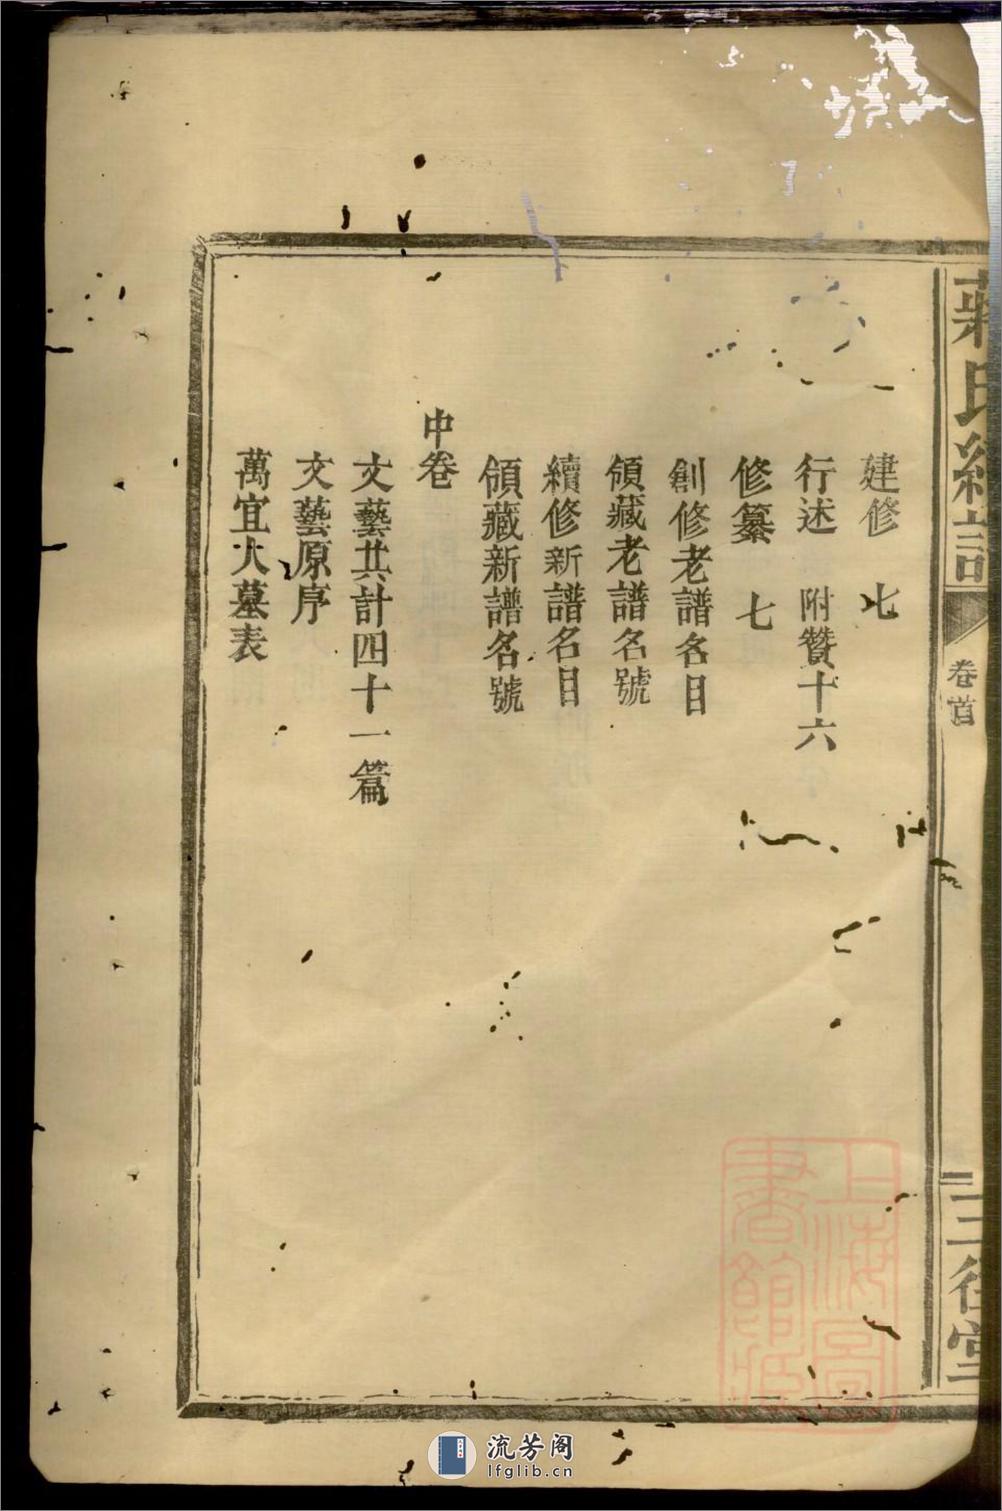 蔣氏續譜
卷首
三徑堂
建修　七
行述　附贊十六
修纂　七
創修老譜名目
領藏老譜名號
續修新譜名目
領藏新譜名號
中卷
文藝共計四十一篇
文藝原序
萬宜人墓表
上海圖書館藏
流芳阁
lfglib.cn